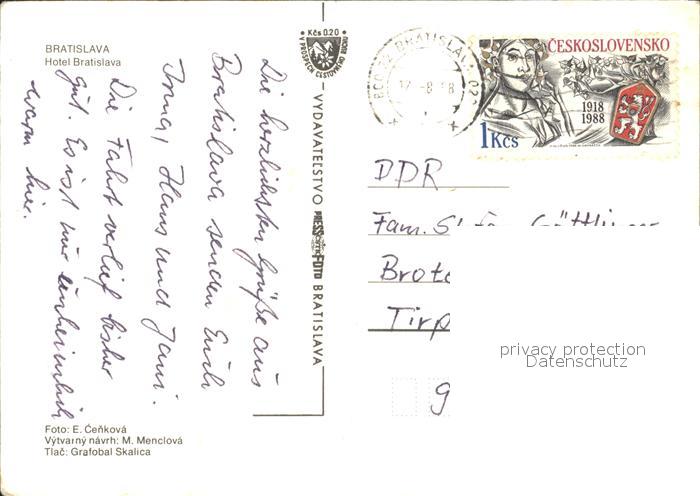 BRATISLAVA
Hotel Bratislava
Die herzlichsten Grüße aus
Bratislava senden Euch
Irma, Hans und Jani.
Die Fahrt verlief bisher
gut. Es ist nur unheimlich
warm hier.
Foto: E. Čeňková
Výtvarný návrh: M. Menclová
Tlač: Grafobal Skalica
Kčs 0.20
V PROSPECH CESTOVNÉHO RUCHU
VYDAVATEĽSTVO PRESSFOTO BRATISLAVA
BRATISLAVA
ČESKOSLOVENSKO
1918
1988
1 Kčs
DDR
Fam.
Brote
Tirp
9
privacy protection
Datenschutz